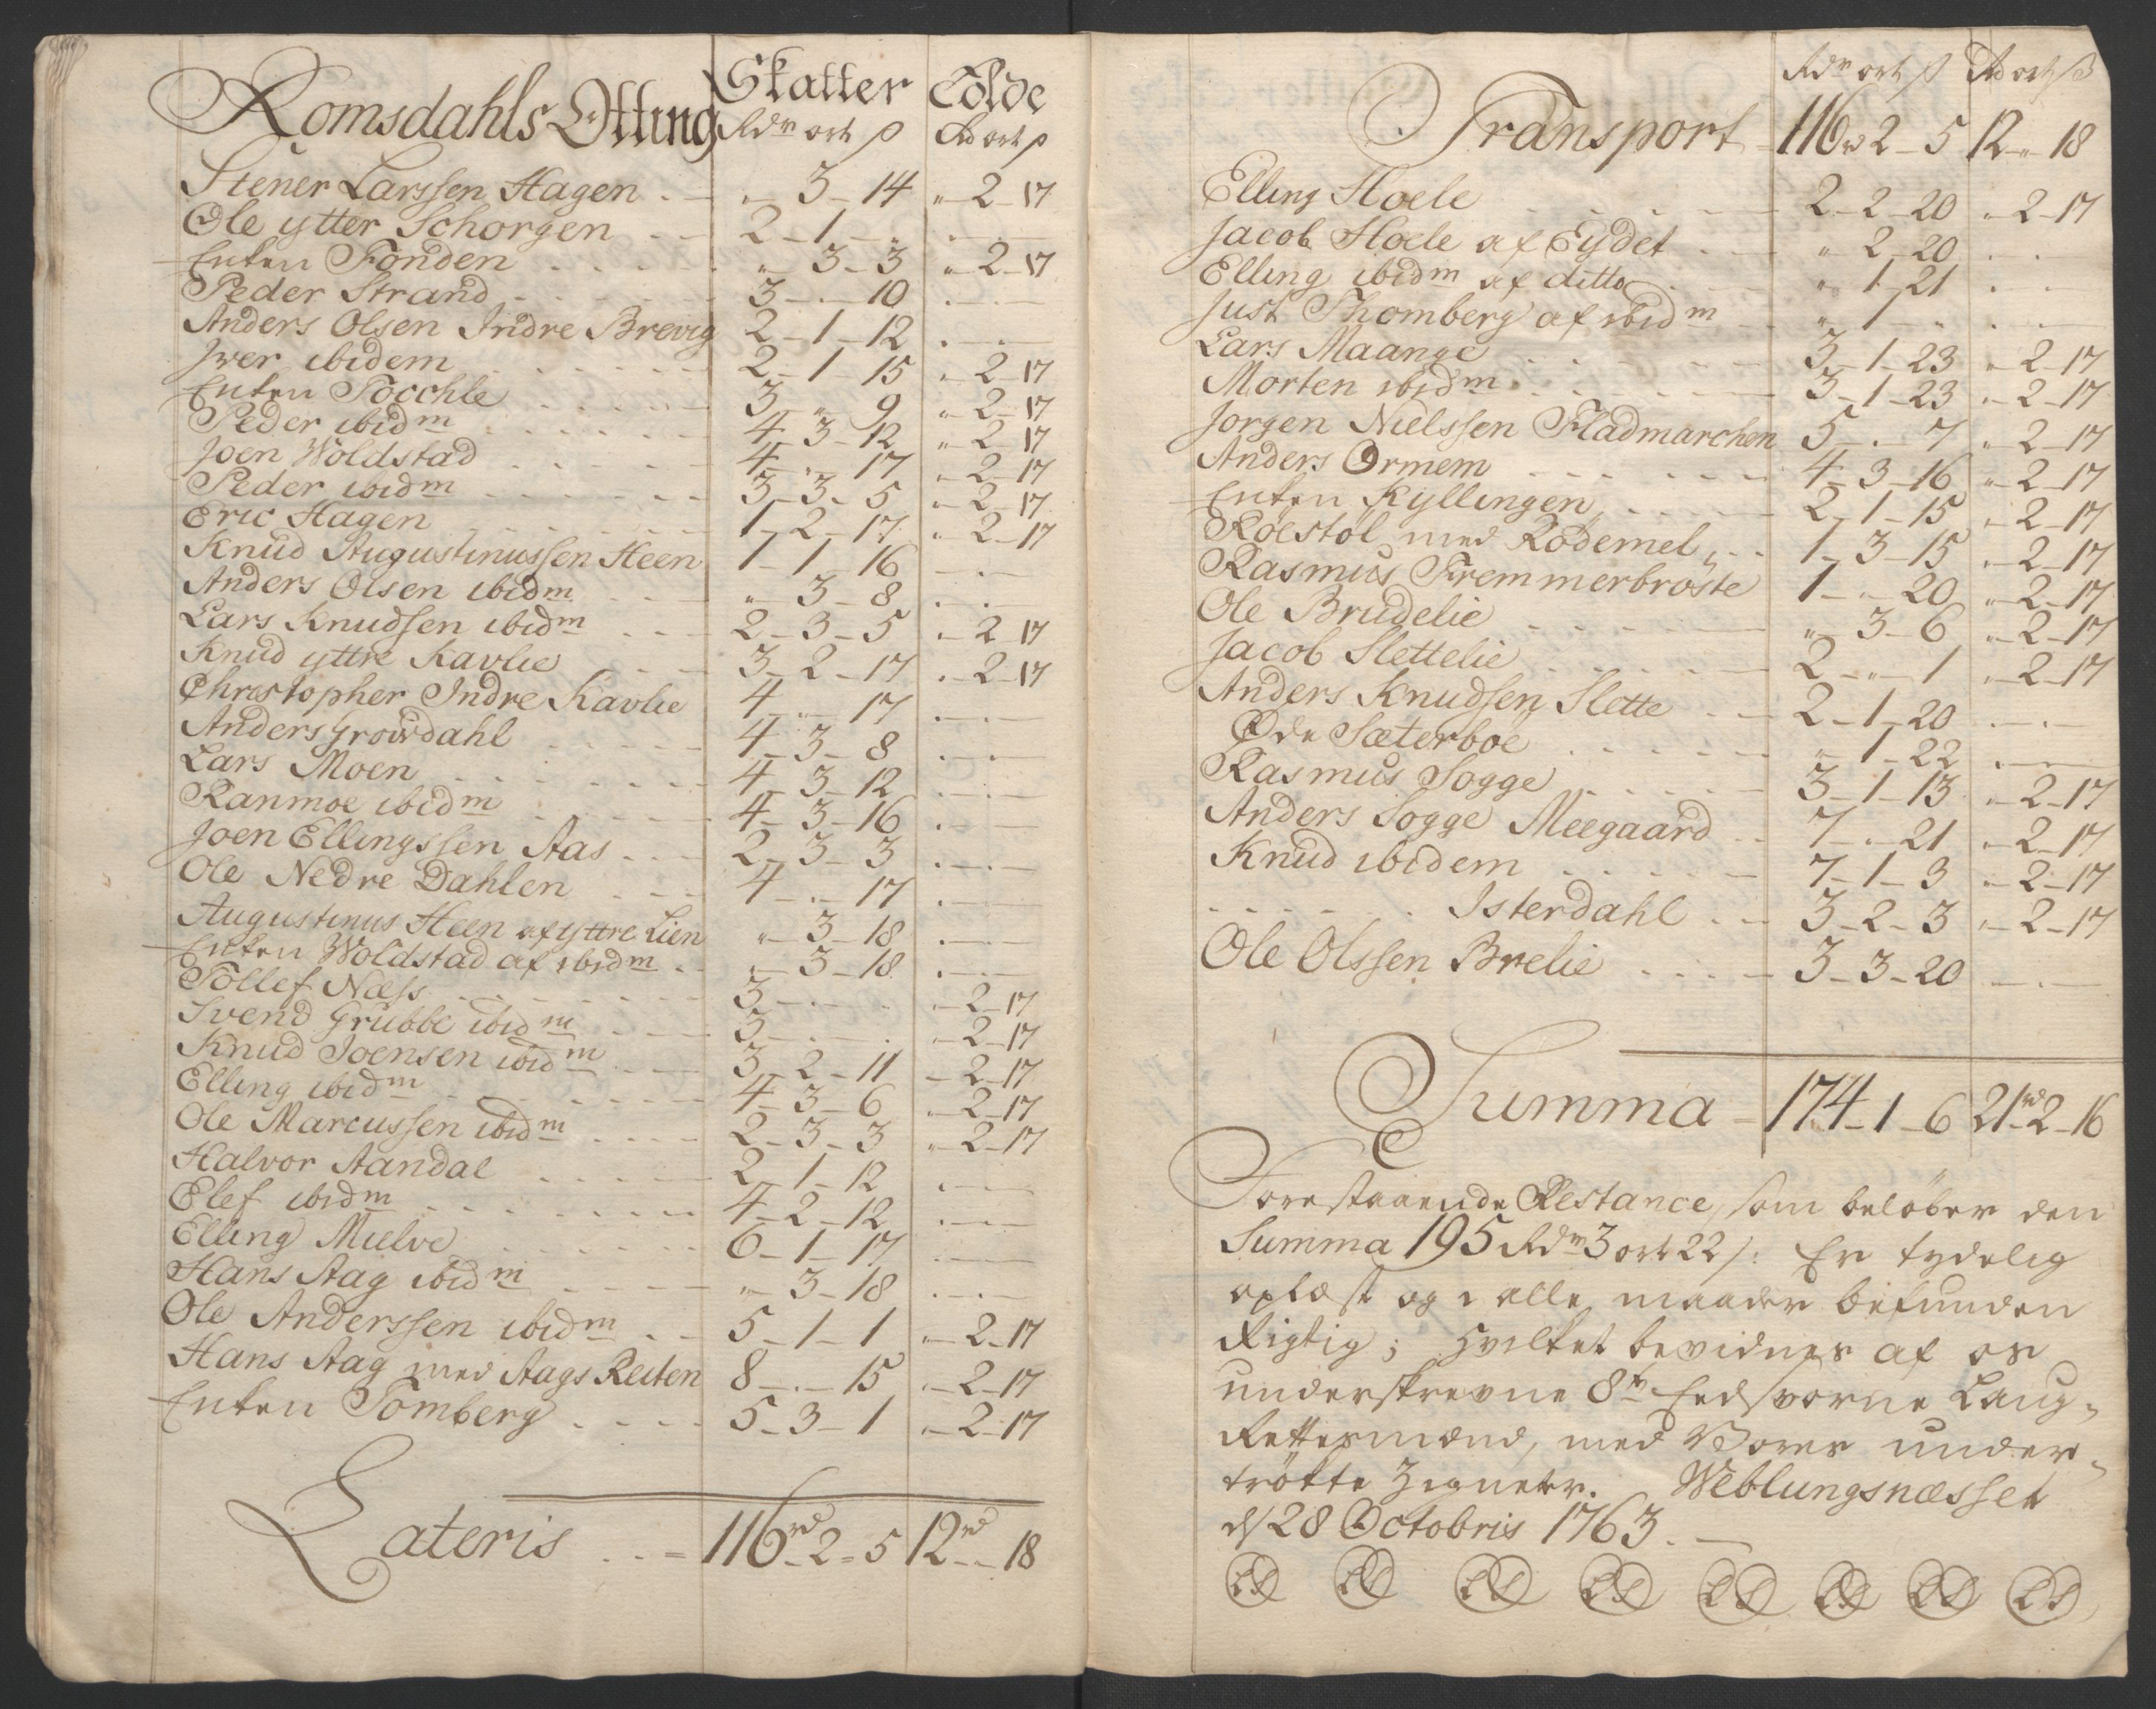 Romsdahls Otting Skatter Tolde
Rdr ort ß Rd ort ß
Stener Larssen Hagen . - " 3 - 14 " - 2 - 17
Ole ytter Schorgen . . - 2 - 1 - " . . -
Enken Fonden . . . . . " 3 - 3 " - 2 - 17
Peder Strand . . . . . 3 - " - 10 . . -
Anders Olsen Indre Brevig 2 - 1 - 12 . . -
Iver ibidem . . . . . 2 - 1 - 15 " - 2 - 17
Enken Tocchle . . . . . 3 " 9 " - 2 - 17
Peder ibidm . . . . . 4 - 3 - 12 " - 2 - 17
Joen Woldstad . . . . . 4 - " - 17 " - 2 - 17
Peder ibidm . . . . . 3 - 3 - 5 " - 2 - 17
Eric Hagen . . . . . 1 - 2 - 17 " - 2 - 17
Knud Augustinussen Heen 1 - 1 - 16 - . -
Anders Olsen ibidm . . " - 3 - 8 . . -
Lars Knudsen ibidm . . 2 - 3 - 5 " - 2 - 17
Knud yttre Kavlie . . . 3 - 2 - 17 " - 2 - 17
Christopher Indre Kavlie 4 - " - 17 . - . -
Anders Grøvdahl . . . . 4 - 3 - 8 . - . -
Lars Moen . . . . . 4 - 3 - 12 . - . -
Ranmoe ibidm . . . . 4 - 3 - 16 . - . -
Joen Ellingssen Aas . . . 2 - 3 - 3 . - . -
Ole Nedre Dahlen . . . 4 - . - 17 . - . -
Augustinus Heen af yttre Lien " - 3 - 18 . - . -
Enken Woldstad af ibidm . . " - 3 - 18 . - . -
Tollef Næss . . . . . 3 - . - . " - 2 - 17
Svend Grubbe ibidm . . . 3 - . - . " - 2 - 17
Knud Joensen ibidm . . . 3 - 2 - 11 - 2 - 17
Elling ibidm . . . . . 4 - 3 - 6 " - 2 - 17
Ole Marcussen ibidm . . . 2 - 3 - 3 " - 2 - 17
Halvor Aandal . . . . . 2 - 1 - 12 . - . -
Elef ibidm . . . . . 4 - 2 - 12 . - . -
Elling Mielve . . . . . 6 - 1 - 17 . - . -
Hans Aag ibidm . . . . " - 3 - 18 . - . -
Ole Anderssen ibidm . . 5 - 1 - 1 " - 2 - 17
Hans Aag med Aags Reiten 8 - . - 15 . - 2 - 17
Enken Tomberg . . . . 5 - 3 - 1 " - 2 - 17
Lateris . . = 116rd - 2 = 5 12rd - . - 18
Rdr ort ß Rd ort ß
Transport - 116rd 2 - 5 12 - " - 18
Elling Hoele . . . . . 2 - 2 - 20 " - 2 - 17
Jacob Hoele af Eydet . . . " 2 - 20 . . -
Elling ibidm af ditto . . . " 1 - 21 . .
Just Thomberg af ibidm . . " 1 - . . . -
Lars Maange . . . . . 3 - 1 - 23 " - 2 - 17
Morten ibidm . . . . . 3 - 1 - 23 " - 2 - 17
Jorgen Nielssen Fladmarchen 5 - . 7 " - 2 - 17
Anders Ormem . . . . . 4 - 3 - 16 " - 2 - 17
Enken Kyllingen . . . . 2 - 1 - 15 " - 2 - 17
Roestol med Rødemel . . 1 - 3 - 15 " - 2 - 17
Rasmus Fremmerbrøste 1 - " - 20 " - 2 - 17
Ole Brudelie . . . . . " 3 - 6 " - 2 - 17
Jacob Slettelie . . . . . 2 - " - 1 " - 2 - 17
Anders Knudsen Slette . . 2 - 1 - 20 - . -
Øde Sæterboe . . . . . " 1 - 22 . -
Rasmus Sogge . . . . . 3 - 1 - 13 " - 2 - 17
Anders Sogge Meegaard . . 7 - . - 21 " - 2 - 17
Knud ibidem . . . . . 7 - 1 - 3 " - 2 - 17
. . . . . Isterdahl . . . 3 - 2 - 3 " - 2 - 17
Ole Olssen Brelie . . . . 3 - 3 - 20 - . -
Summa - 174 - 1 - 6 21rd 2 - 16
Forestaaende Restance, som beløber den
Summa 195 Rdr 3 ort 22 ß: Er tydelig
oplæst og i alle maader befunden
Rigtig; Hvilket bevidnes af os
underskrevne 8te Eedsvorne Laug-
Rettesmænd, med Vores under-
trøkte Zigneter. Weblungsnæsset
d/ 28 Octobris 1763. -
LS LS LS LS LS LS LS LS